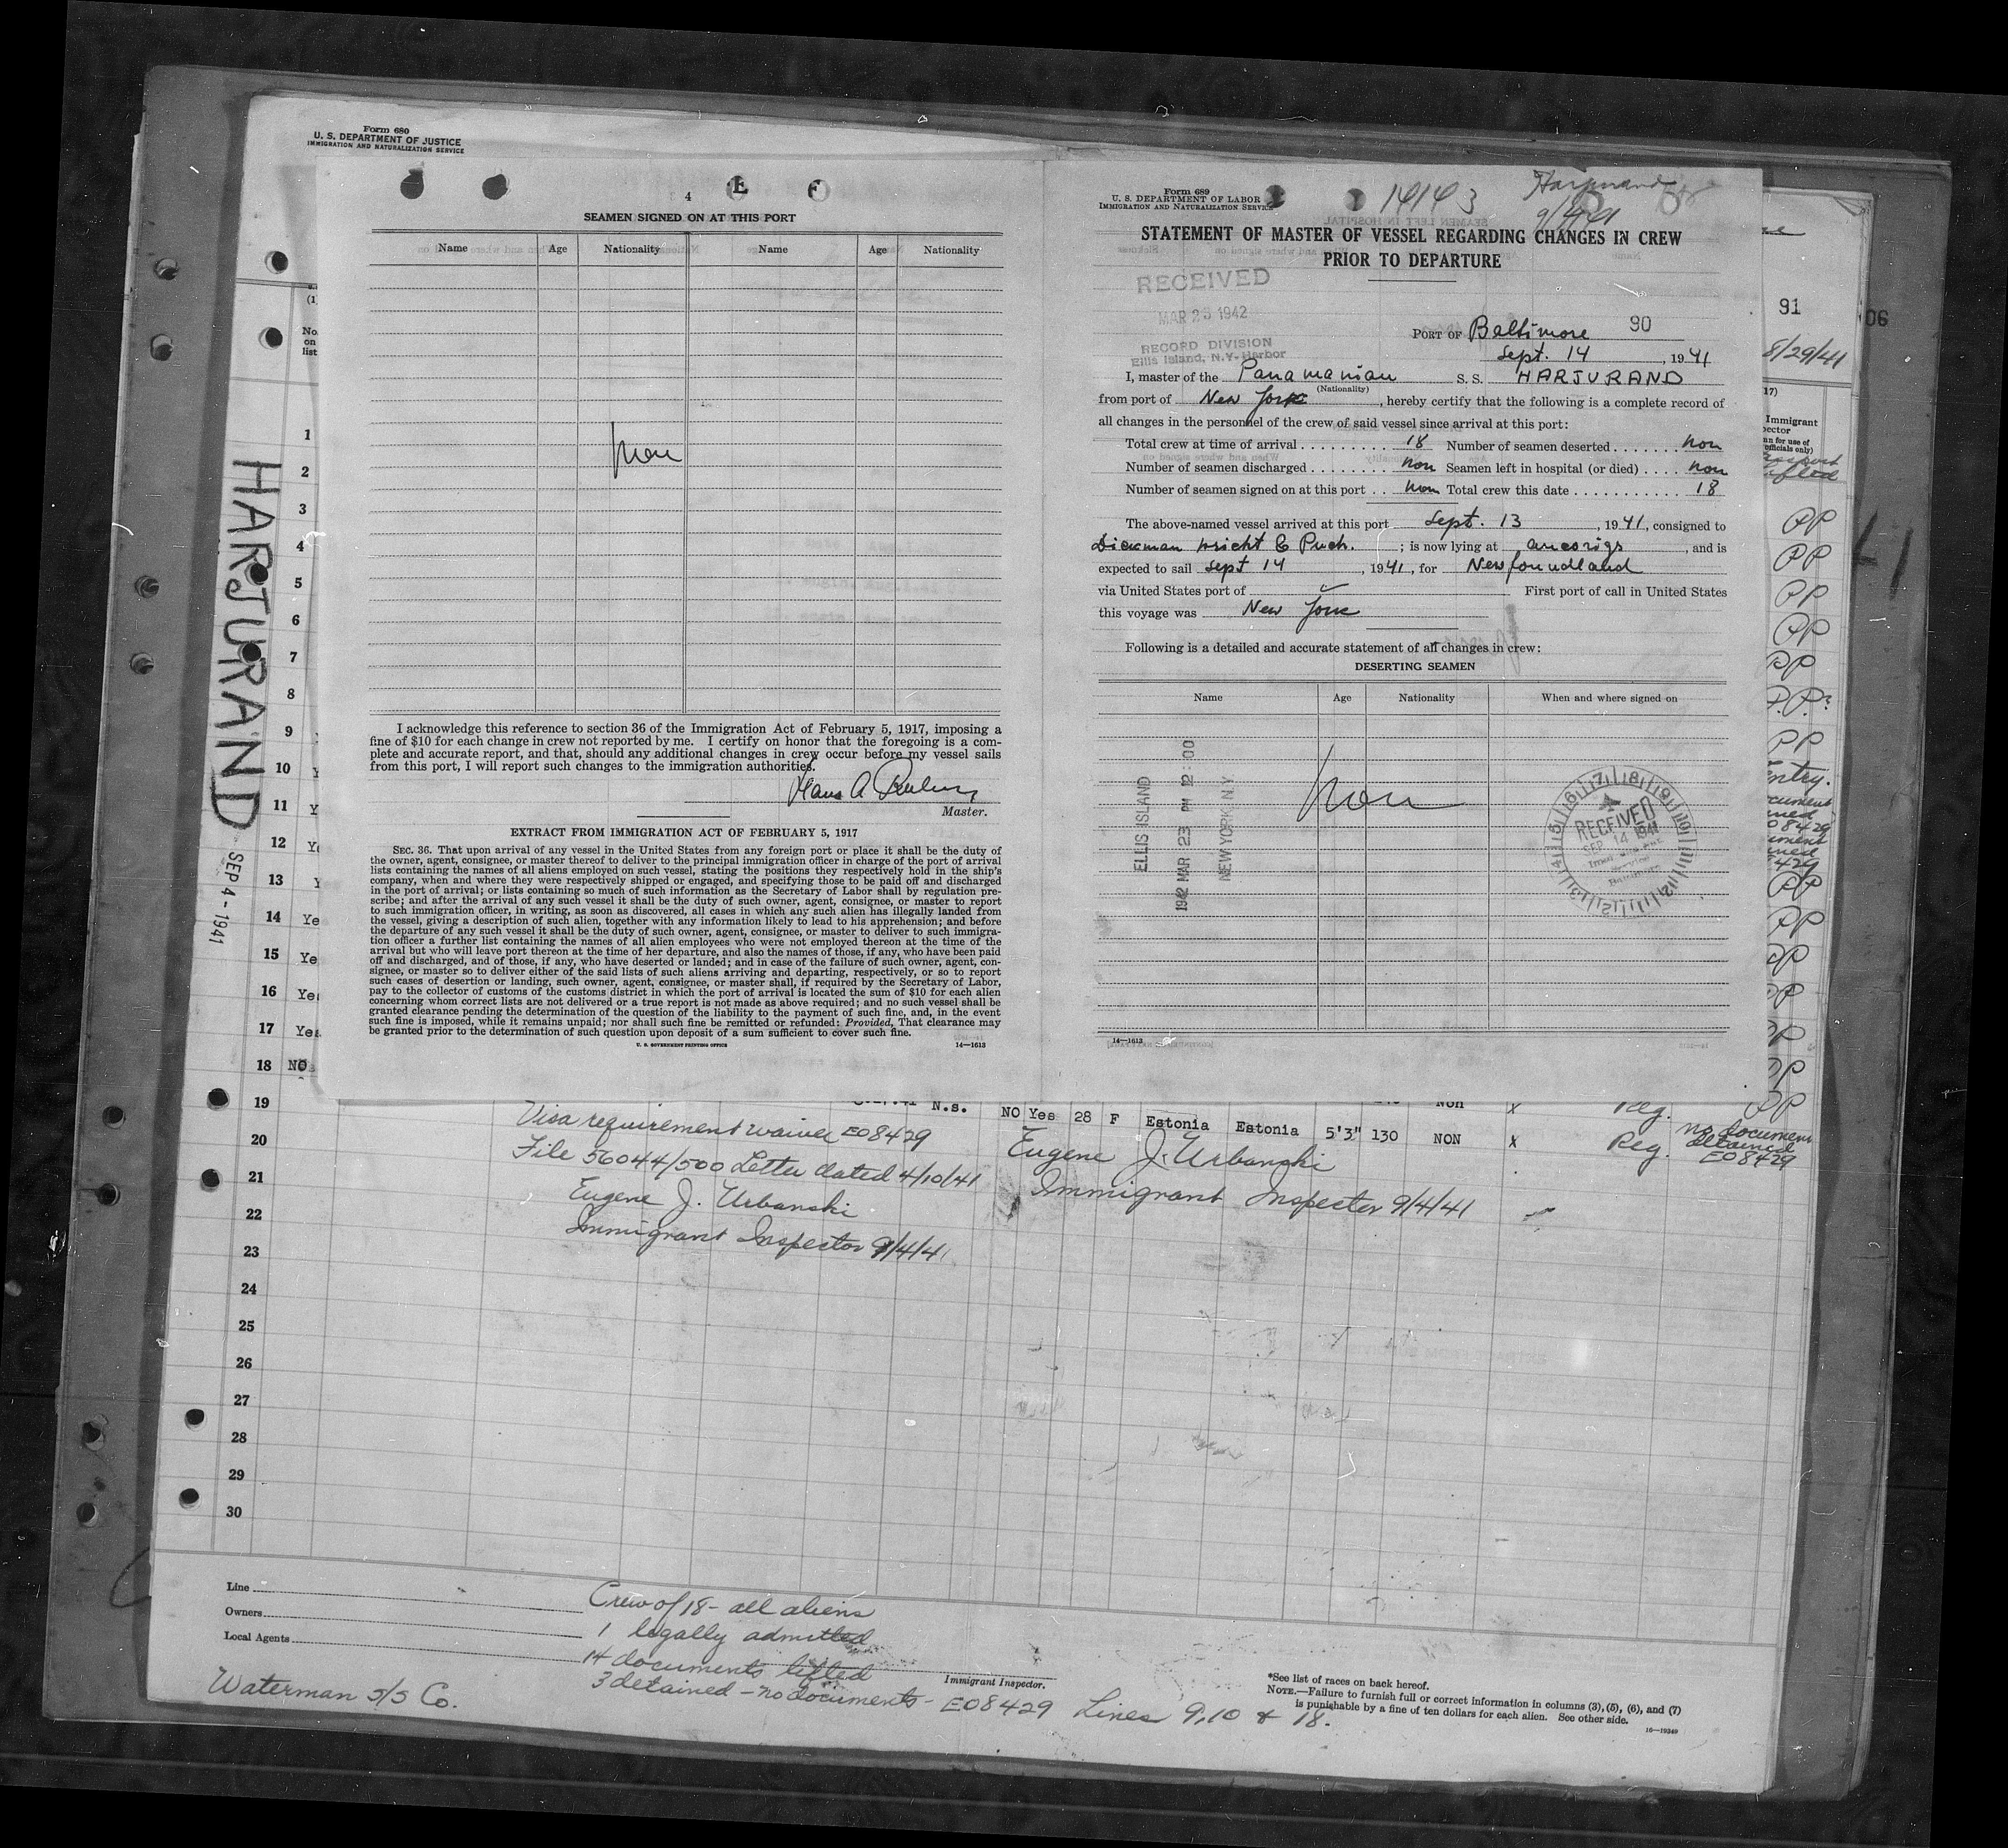 Form 680
U. S. DEPARTMENT OF JUSTICE
IMMIGRATION AND NATURALIZATION SERVICE
4
E F
SEAMEN SIGNED ON AT THIS PORT
Name Age Nationality Name Age Nationality
Non
I acknowledge this reference to section 36 of the Immigration Act of February 5, 1917, imposing a
fine of $10 for each change in crew not reported by me. I certify on honor that the foregoing is a com-
plete and accurate report, and that, should any additional changes in crew occur before my vessel sails
from this port, I will report such changes to the immigration authorities.
Hans A
Master.
EXTRACT FROM IMMIGRATION ACT OF FEBRUARY 5, 1917
SEC. 36. That upon arrival of any vessel in the United States from any foreign port or place it shall be the duty of
the owner, agent, consignee, or master thereof to deliver to the principal immigration officer in charge of the port of arrival
lists containing the names of all aliens employed on such vessel, stating the positions they respectively hold in the ship's
company, when and where they were respectively shipped or engaged, and specifying those to be paid off and discharged
in the port of arrival; or lists containing so much of such information as the Secretary of Labor shall by regulation pre-
scribe; and after the arrival of any such vessel it shall be the duty of such owner, agent, consignee, or master to report
to such immigration officer, in writing, as soon as discovered, all cases in which any such alien has illegally landed from
the vessel, giving a description of such alien, together with any information likely to lead to his apprehension; and before
the departure of any such vessel it shall be the duty of such owner, agent, consignee, or master to deliver to such immigra-
tion officer a further list containing the names of all alien employees who were not employed thereon at the time of the
arrival but who will leave port thereon at the time of her departure, and also the names of those, if any, who have been paid
off and discharged, and of those, if any, who have deserted or landed; and in case of the failure of such owner, agent, con-
signee, or master so to deliver either of the said lists of such aliens arriving and departing, respectively, or so to report
such cases of desertion or landing, such owner, agent, consignee, or master shall, if required by the Secretary of Labor,
pay to the collector of customs of the customs district in which the port of arrival is located the sum of $10 for each alien
concerning whom correct lists are not delivered or a true report is not made as above required; and no such vessel shall be
granted clearance pending the determination of the question of the liability to the payment of such fine, and, in the event
such fine is imposed, while it remains unpaid; nor shall such fine be remitted or refunded: Provided, That clearance may
be granted prior to the determination of such question upon deposit of a sum sufficient to cover such fine.
U. S. GOVERNMENT PRINTING OFFICE 14—1613
Form 689
U. S. DEPARTMENT OF LABOR
IMMIGRATION AND NATURALIZATION SERVICE
14143
STATEMENT OF MASTER OF VESSEL REGARDING CHANGES IN CREW
PRIOR TO DEPARTURE
RECEIVED
MAR 23 1942
RECORD DIVISION
Ellis Island, N.Y. Harbor
PORT OF Baltimore 90
Sept. 14, 1941
I, master of the Panamanian S. S. HARJURAND
(Nationality)
from port of New York, hereby certify that the following is a complete record of
all changes in the personnel of the crew of said vessel since arrival at this port:
Total crew at time of arrival 18 Number of seamen deserted non
Number of seamen discharged non Seamen left in hospital (or died) non
Number of seamen signed on at this port non Total crew this date 18
The above-named vessel arrived at this port Sept. 13, 1941, consigned to
Dickman Wricht & Puch.; is now lying at ancorigs, and is
expected to sail Sept 14, 1941, for Newfoundland
via United States port of First port of call in United States
this voyage was New York
Following is a detailed and accurate statement of all changes in crew:
DESERTING SEAMEN
Name Age Nationality When and where signed on
Non
ELLIS ISLAND
1942 MAR 23 PM 12:00
NEW YORK N.Y
RECEIVED
SEP 14 1941
Baltimore
14—1613
HARJURAND
SEP 4 - 1941
91
8/29/41
06
(1)
No.
on
list
1
2
3
4
5
6
7
8
9
10 Y
11 Y
12 Ye
13 Y
14 Ye
15 Ye
16 Yes
17 Yes
18 NO
19
20
21
22
23
24
25
26
27
28
29
30
17)
Immigrant
PP
PP
PP
PP
PP
P.P.
PP
entry.
PP
PP
PP
PP
PP
PP
PP
N.s. NO Yes 28 F Estonia Estonia 5'3" 130 NON X Reg. no document
detained
EO8429
Visa requirement waived EO8429
File 56044/500 Letter dated 4/10/41
Eugene J. Urbanski
Immigrant Inspector 9/4/41
Eugene J. Urbanski
Immigrant Inspector 9/4/41
Line
Owners
Local Agents
Crew of 18 - all aliens
1 legally admitted
14 documents lifted
3 detained - no documents - EO8429 Lines 9, 10 & 18.
Immigrant Inspector.
Waterman S/S Co.
*See list of races on back hereof.
NOTE.—Failure to furnish full or correct information in columns (3), (5), (6), and (7)
is punishable by a fine of ten dollars for each alien. See other side.
16—19349